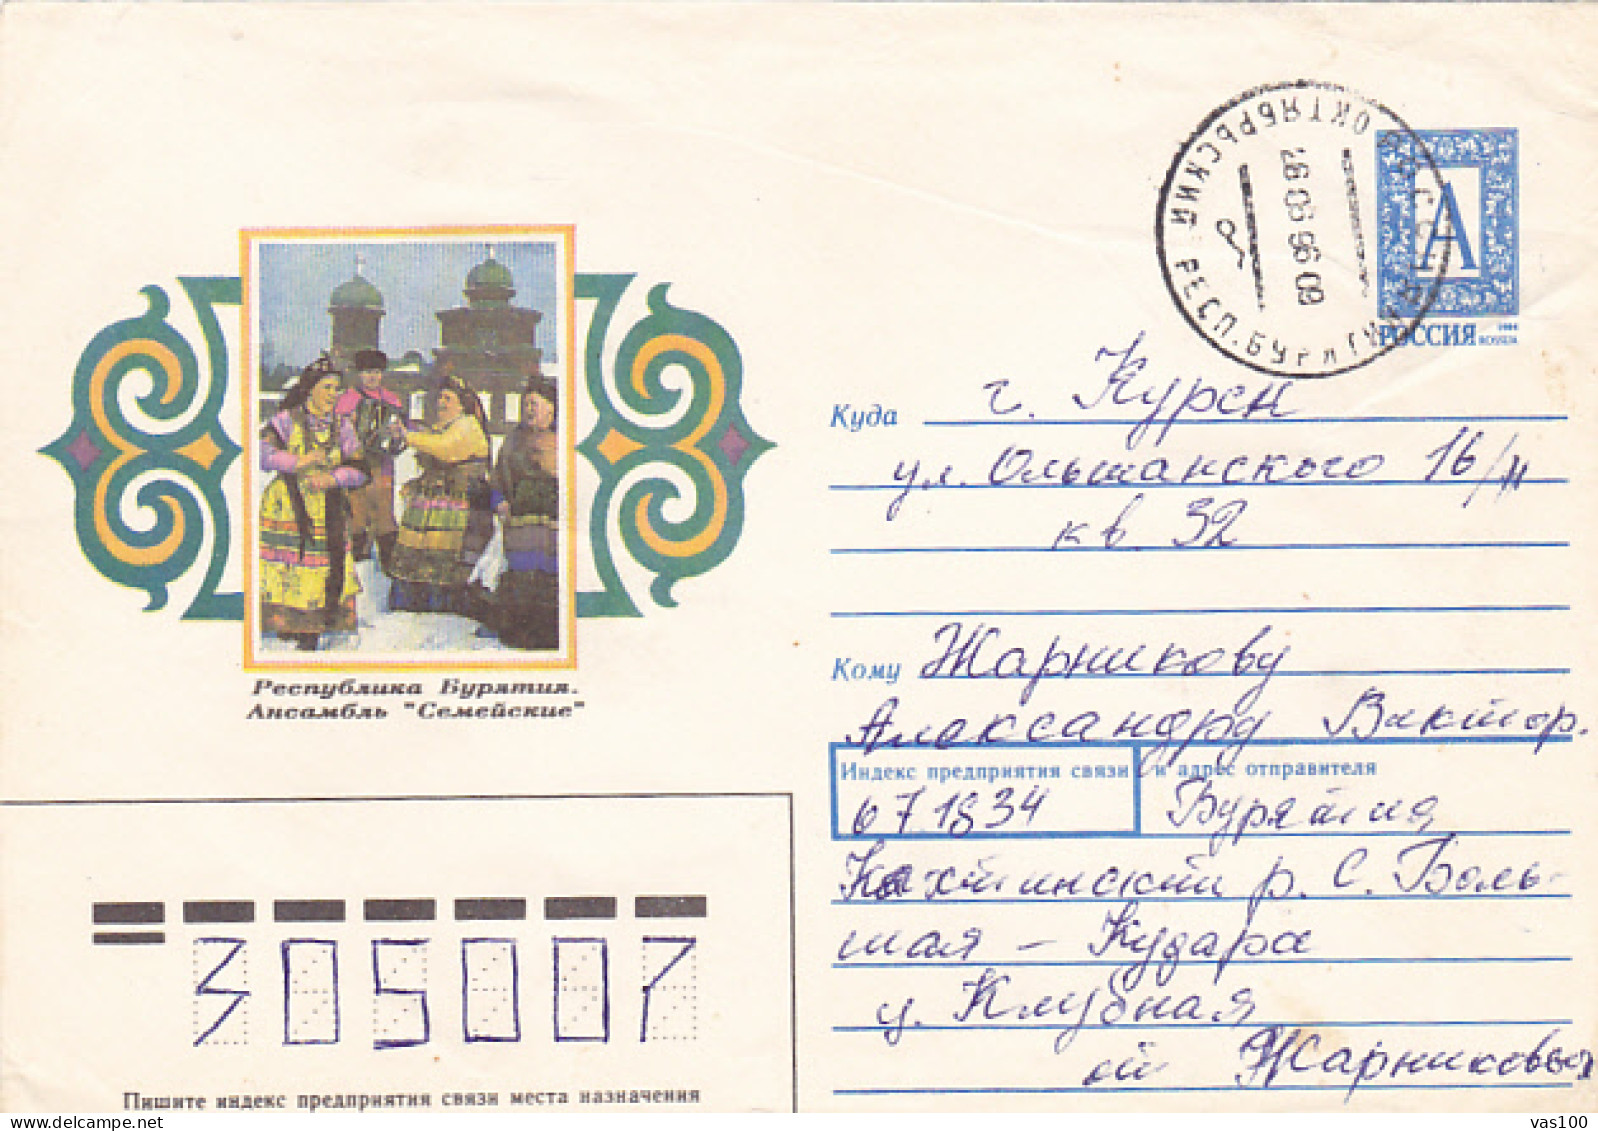 ОКТЯБРЬСКИЙ РЕСП. БУРЯТИЯ
26 06 96 09
А
РОССИЯ 
ROSSIJA
Куда г. Курск
ул. Ольшанского 16/
кв. 32
Кому Жарникову
Александру Виктор.
Индекс предприятия связи и адрес отправителя
671834 Бурятия
Кяхтинский р. С. Боль-
шая - Кудара
у. Клубная
от Жарниковых
Республика Бурятия.
Ансамбль "Семейские"
305007
Пишите индекс предприятия связи места назначения
vas100